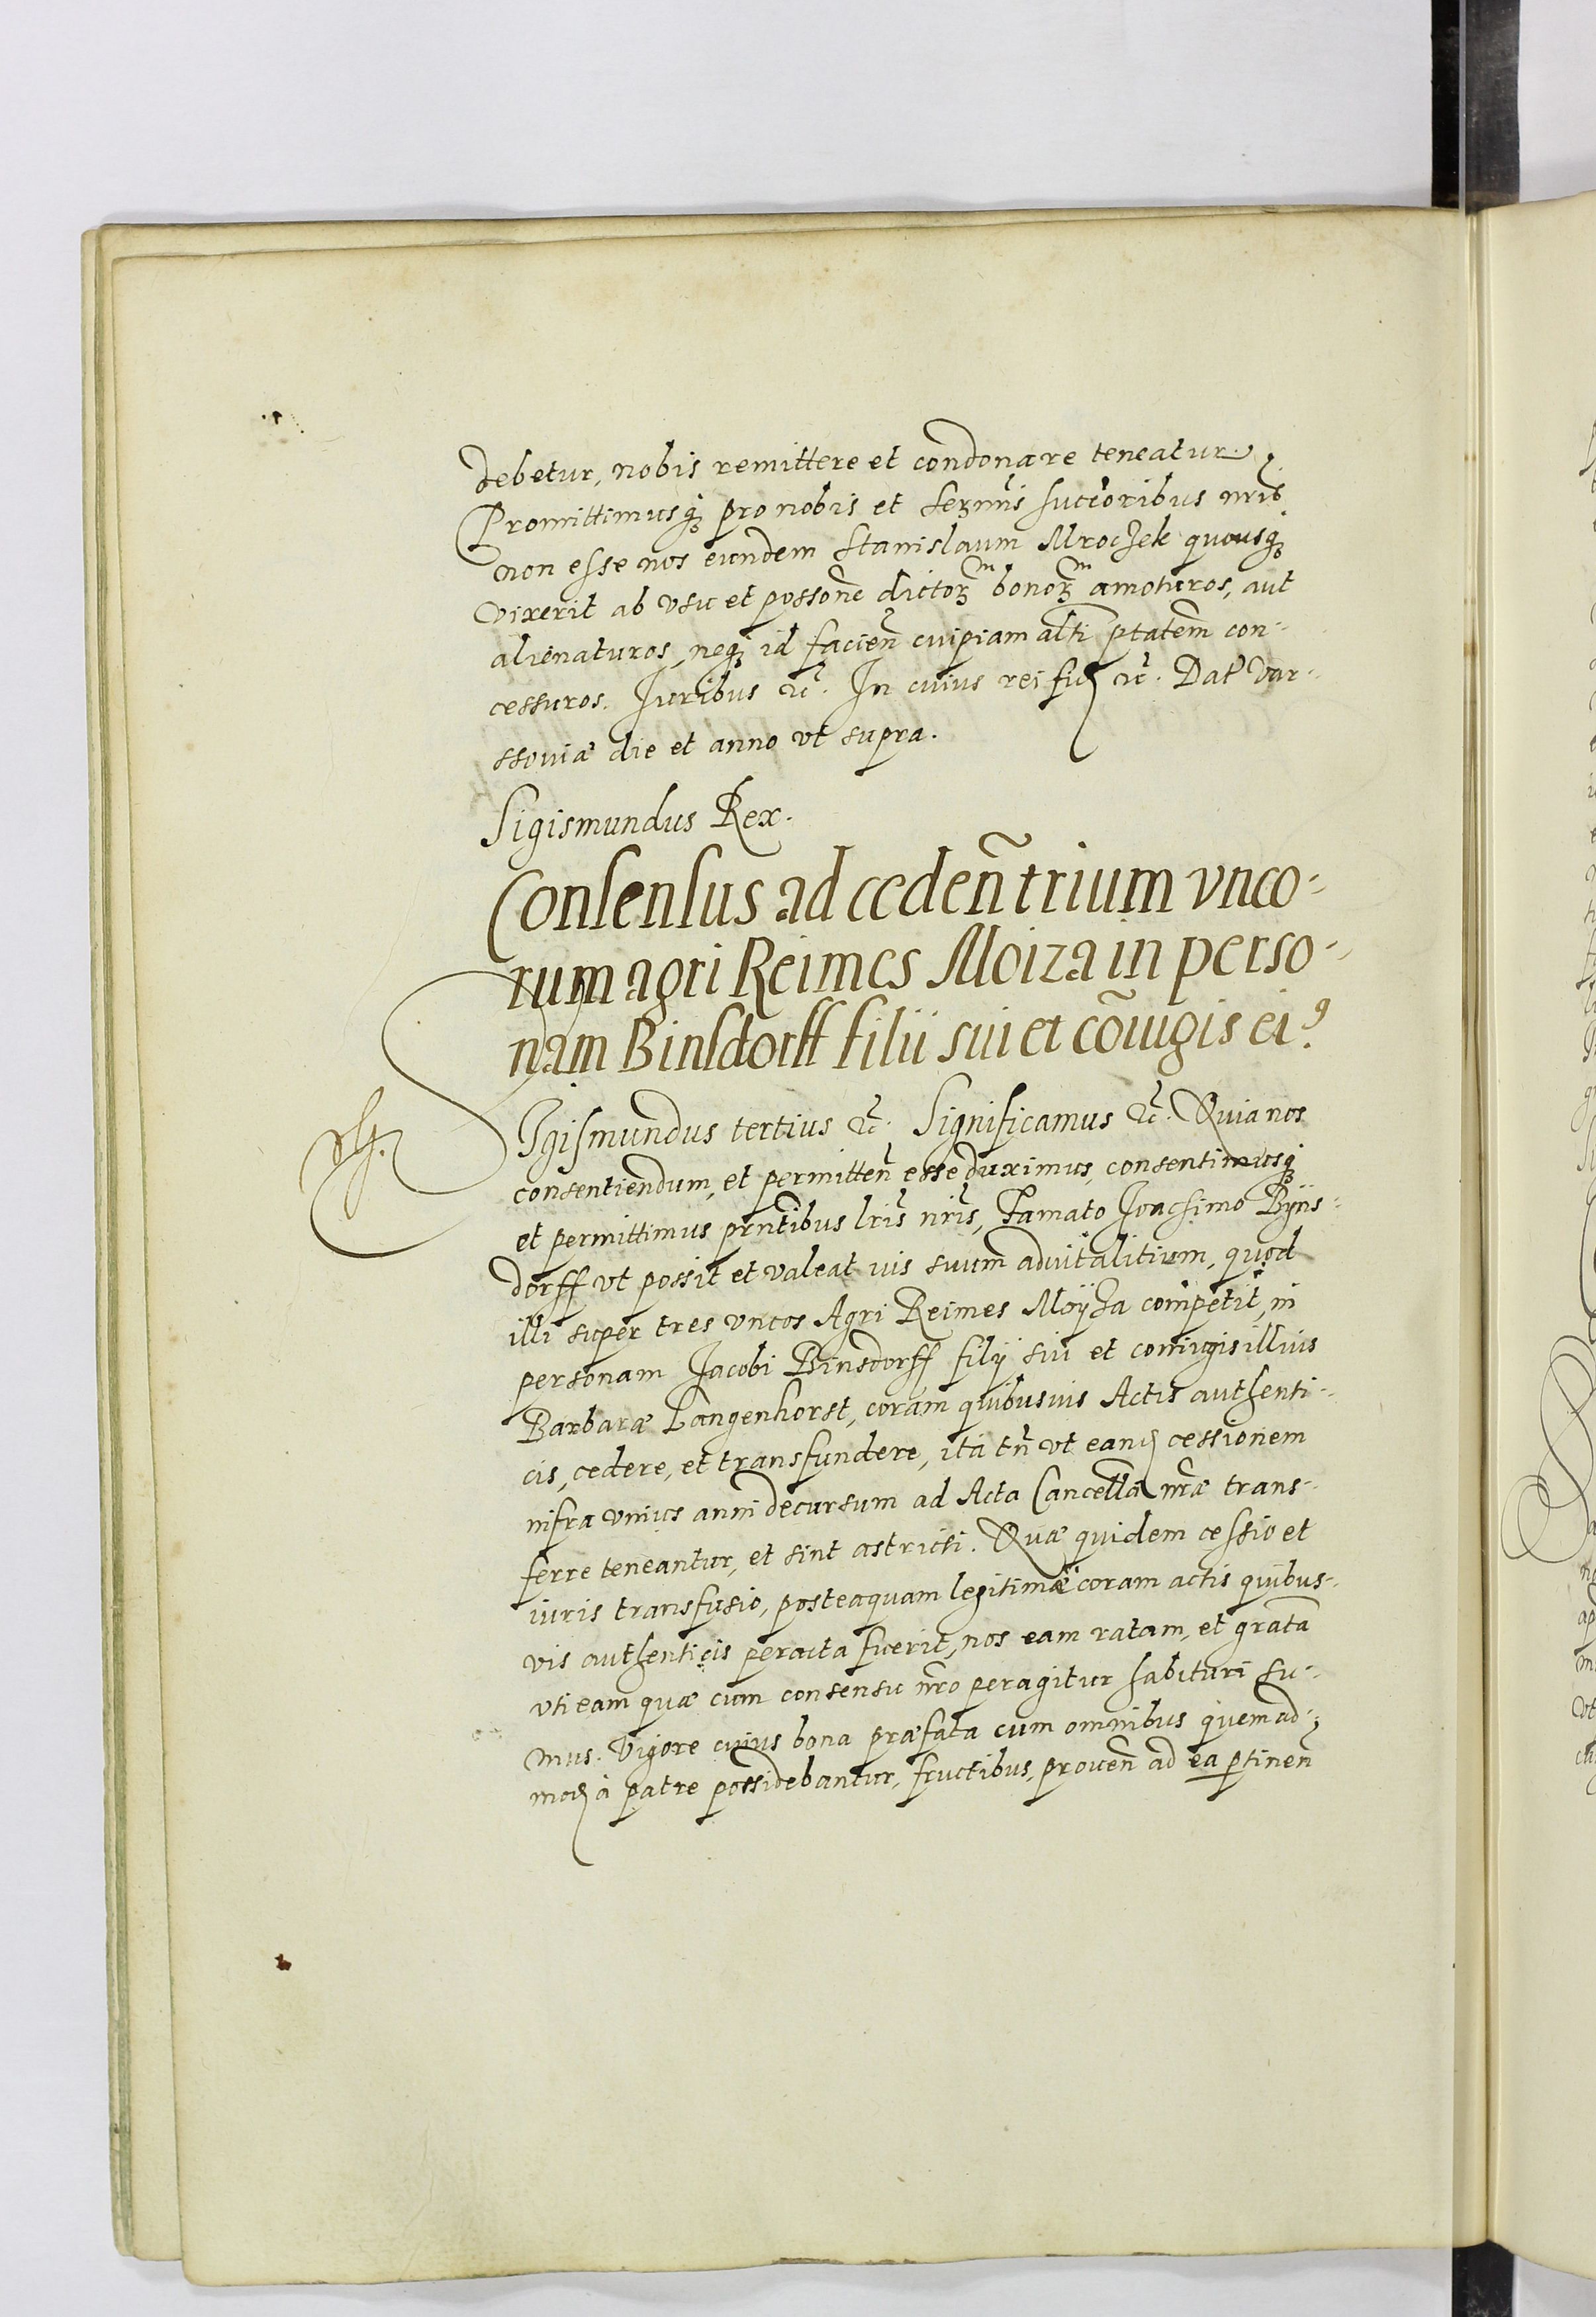 debetur, nobis remittere et condonare teneatur.
Promittimusq₃ pro nobis et Sermis succoribus nris
non esse nos eundem Stanislaum Mroczek quousq₃
vixerit ab vsu et possone dictorum bonorum amoturos, aut
alienaturos, neq₃ id facien cuipiam alti ptatem con-
cessuros. Iuribus etc. In cuius rei fid etc. Dat Var-
ssouiæ die et anno vt supra.
Sigismundus Rex.
Consensus ad ceden trium vnco-
rum agri Reimes Moiza in perso-
nam Binsdorff filii sui et coiugis ei9.
Sigismundus tertius etc. Significamus etc. Quia nos
consentiendum, et permitten esse duximus, consentimusq₃
et permittimus prntibus lris nris, Famato Joachimo Byns-
dorff vt possit et valeat ius suum aduitalitium, quod
illi super tres vncos Agri Reimes Moyza competit, in
personam Jacobi Binsdorff filij sui et coniugis illius
Barbaræ Langenhorst, coram quibusuis Actis authenti-
cis, cedere, et transfundere, ita tn vt eand cessionem
infra vnius anni decursum ad Acta Cancella nræ trans-
ferre teneantur, et sint astricti. Quæ quidem cessio et
iuris transfusio, posteaquam legitimæ coram actis quibus-
vis authenticis peracta fuerit, nos eam ratam, et gratã
vti eam quæ cum consensu nro peragitur habituri su-
mus. Vigore cuius bona præfata cum omnibus quemad-
mod à patre possidebantur, fructibus, prouen ad ea ptinen